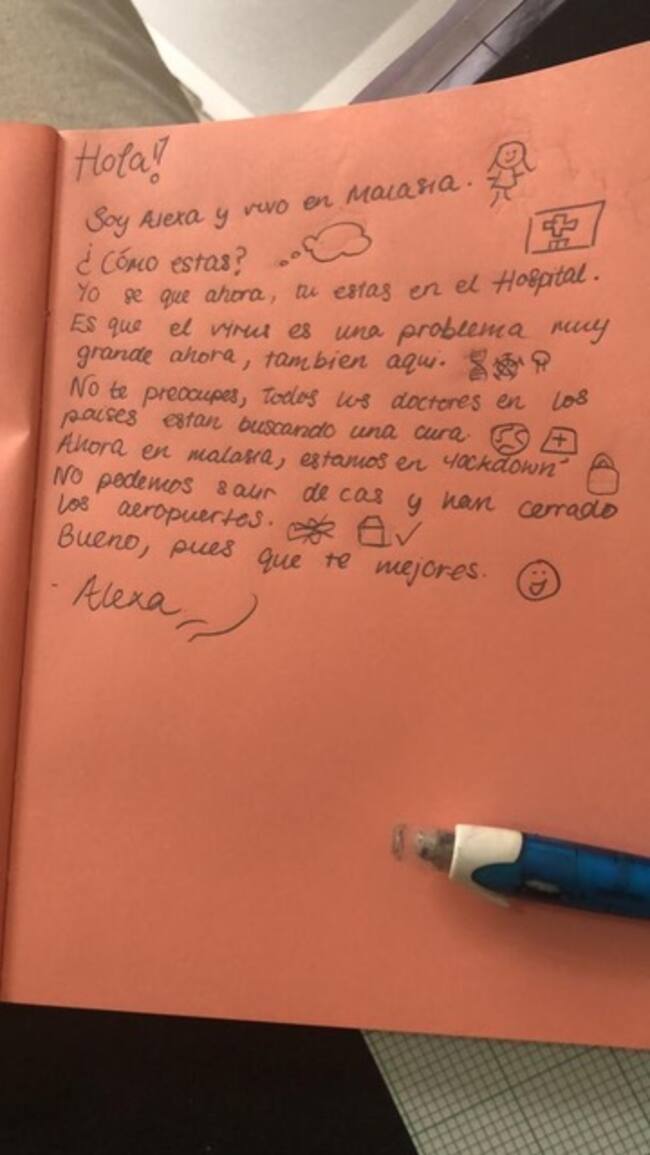 Hola!!
Soy Alexa y vivo en Malasia.
¿Cómo estas?
Yo se que ahora, tu estas en el Hospital.
Es que el virus es una problema muy
grande ahora, tambien aqui.
No te preocupes, Todos los doctores en los
países estan buscando una cura.
Ahora en malasia, estamos en "lockdown"
No podemos salir de cas y han cerrado
los aeropuertos.
Bueno, pues que te mejores.
- Alexa